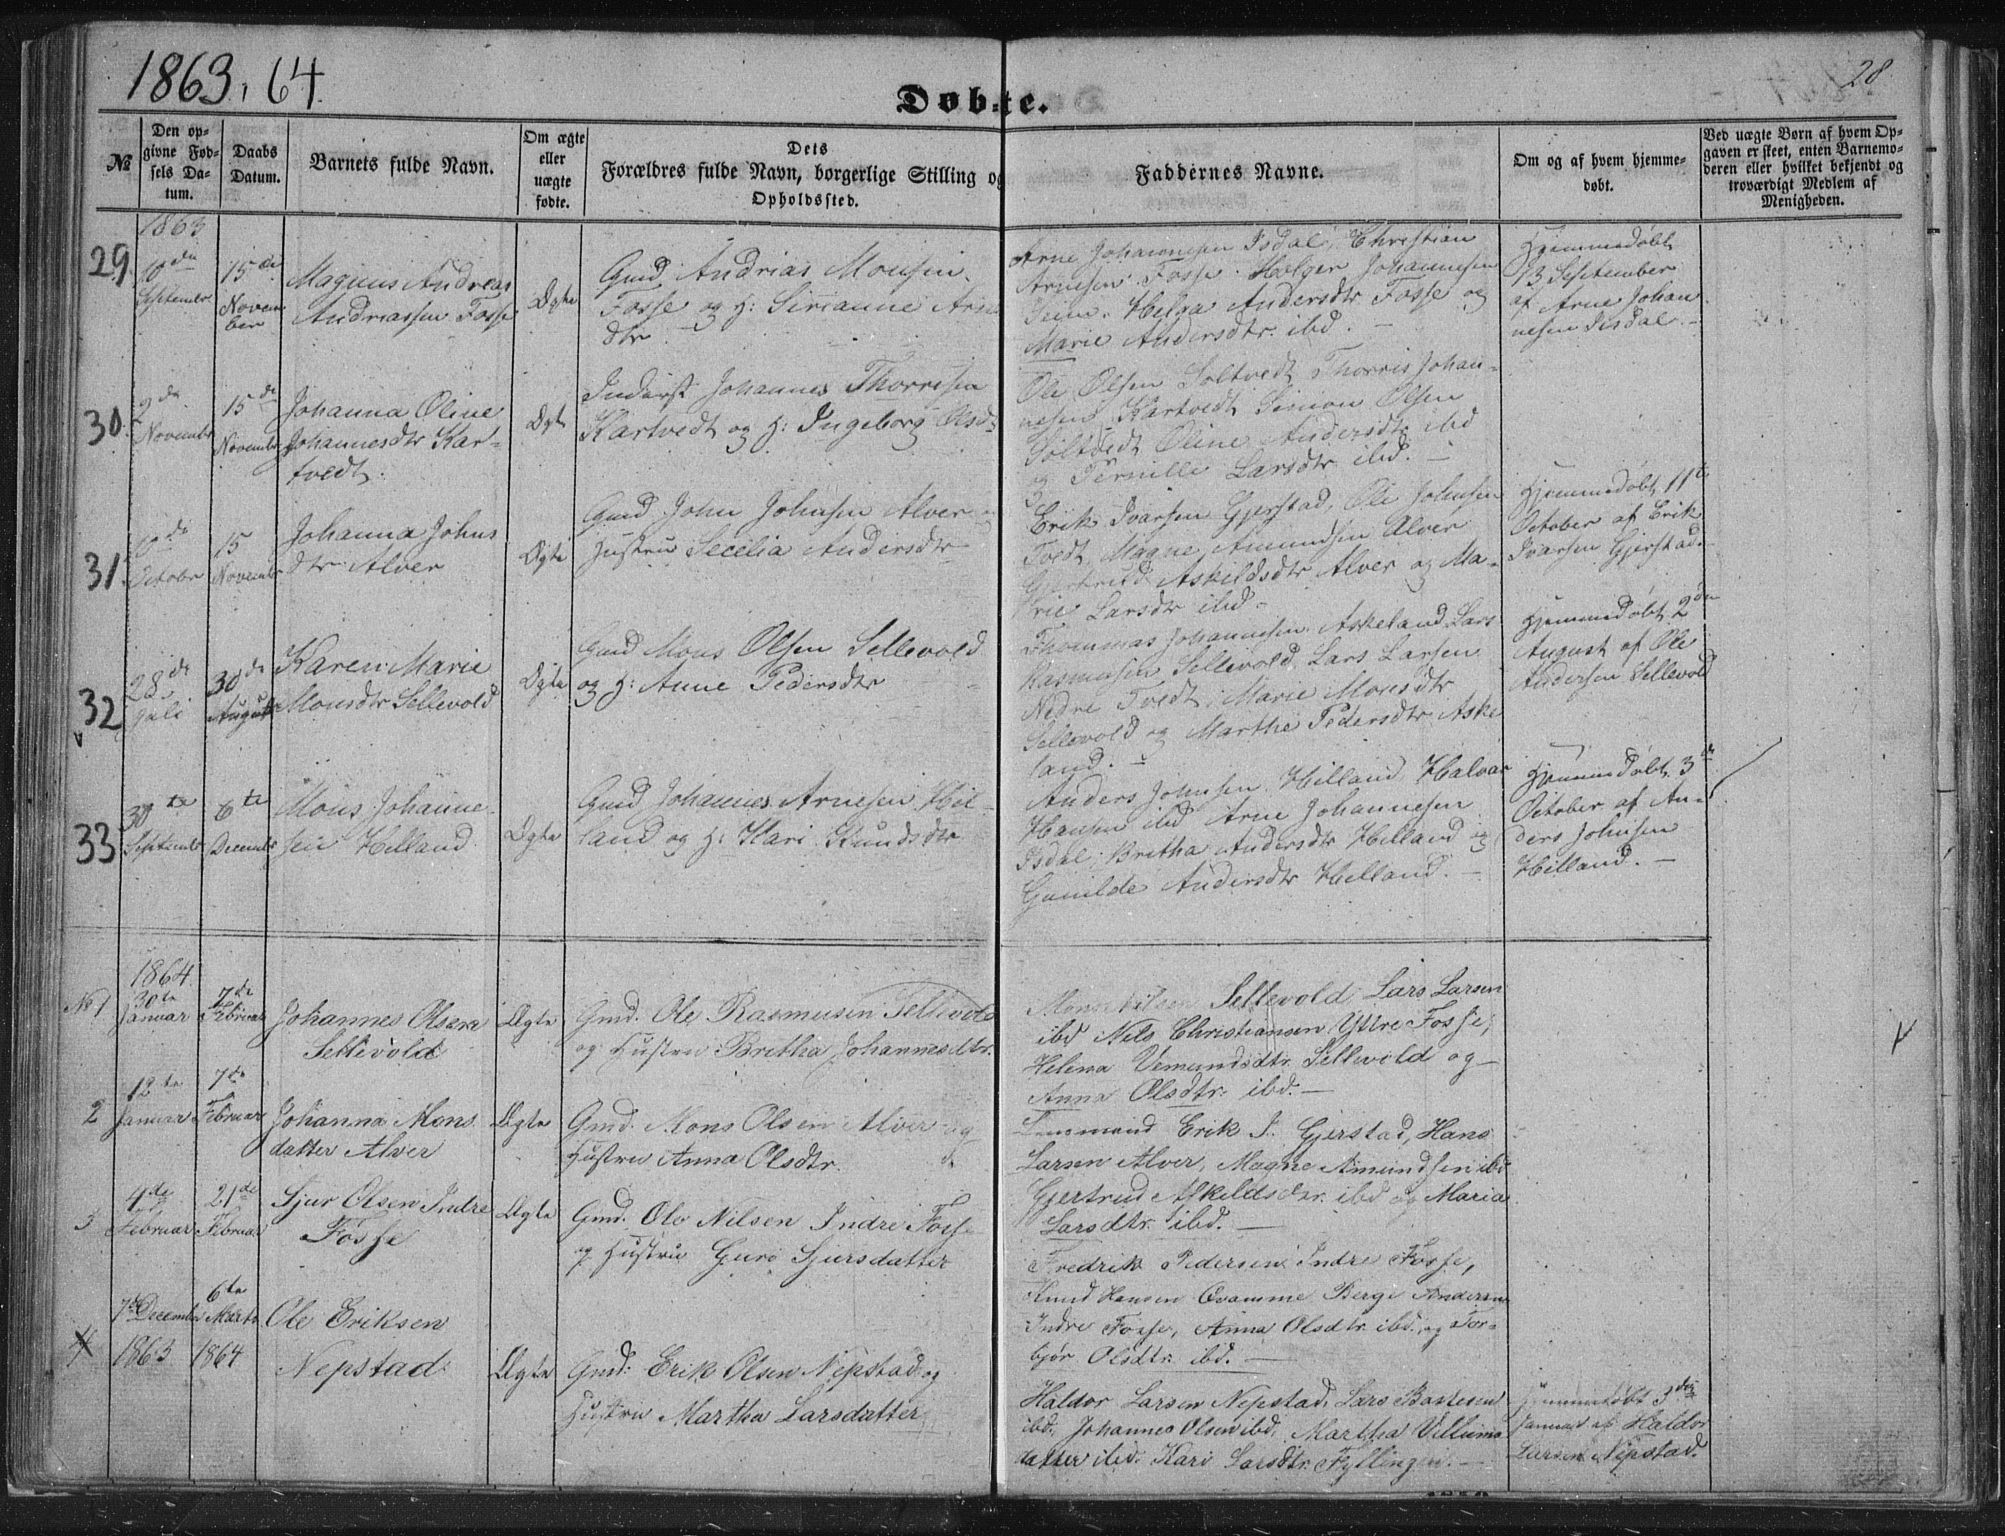 1863, 64.
28
Döbte.
№
Den opgivne Fødsels Datum.
Daabs Datum.
Barnets fulde Navn.
Om ægte eller uægte fødte.
Dets Forældres fulde Navn, borgerlige Stilling og Opholdssted.
Faddernes Navne.
Om og af hvem hjemmedøbt.
Ved uægte Børn af hvem Opgaven er skeet, enten Barnemoderen eller hvilket bekjendt og troværdigt Medlem af Menigheden.
1863
29.
10de
September
15de
November
Magnus Andreas
Andriassen Fosse
Ægte
Gmd Andrias Monsen
Fosse og H: Sirianne Arne
dtr
Arne Johannesen Isdal, Christian
Arnesen Fosse. Holger Johannesen
Helga Andersdtr Fosse og
Marie Andersdtr. ibd. —
Hjemmedøbt
13 September
af Arne Johan
nesen Isdal. —
30.
2den
Novembr
15de
Novembr
Johanna Oline
Johannesdtr Kar-
tvedt.
Ægte
Inderst Johannes Thorresen
Kartvedt og H: Ingeborg Olsdt
Ole Olsen Soltvedt, Thorris Johan-
nesen Kartvedt Simon Olsen
Soltvedt Oline Andersdtr ibd
og Pernille Larsdtr ibd. —
31.
10de
Octobr
15
Novembr
Johanna Johns
dtr. Alver
Ægte
Gmd John Johnsen Alver og
Hustru Secelia Andersdtr
Erik Ivarsen Gjerstad, Ole Johnsen
Tvedt, Magne Amundsen Alver
Gjertrud Askildsdtr Alver og Ma-
rie Larsdtr ibd.
Hjemmedøbt 11te
October af Erik
Ivarsen Gjerstad. —
32
28de
Juli
30de
August
Karen Marie
Monsdtr Sellevold
Ægte
Gmd Mons Olsen Sellevold
og H: Anne Pedersdtr
Thommas Johannesen Askeland, Lars
Rasmusen Sellevold, Lars Larsen
Nedre Tvedt, Marie Monsdtr
Sellevold og Marthe Pedersdtr Aske
land. —
Hjemmedøbt 2den
August af Ole
Andersen Sellevold
33
30te
Septembr
6te
Decembr
Mons Johanne-
sen Helland
Ægte
Gmd Johannes Arnesen Hel-
land og H: Kari Knudsdtr
Anders Johnsen Helland, Halvar
Hansen ibd Arne Johannesen
Isdal, Britha Andersdtr Helland og
Gunilde Andersdtr Helland. —
Hjemmedøbt 3de
October af An-
ders Johnsen
Helland. —
1864.
No 1
30te
Januar
7de
Februar
Johannes Olsen
Sellevold
Ægte
Gmd. Ole Rasmusen Sellevold
og Hustru Britha Johannesdtr.
Mons Nilsen Sellevold, Lars Larsen
ibd Nils Christiansen Yttre Fosse,
Helena Vemundsdtr. Sellevold og
Anna Olsdtr. ibd. —
2
12te
Januar
7de
Februar
Johanna Mons
datter Alver
Ægte
Gmd. Mons Olsen Alver og
Hustru Anna Olsdtr.
Lensmand Erik I. Gjerstad, Hans
Larsen Alver, Magne Amundsen ibd
Gjertrud Askeldsdtr. ibd og Maria
Larsdtr. ibd. —
3
4de
Februar
21de
Februar
Sjur Olsen Indre
Fosse
Ægte
Gmd. Ole Nilsen Indre Fosse
og Hustru Guro Sjursdatter
Fredrik Pedersen Indre Fosse,
Knud Hansen Qvamme Berge Andersen
Indre Fosse, Anna Olsdtr. ibd. og Tor-
bjør Olsdtr. ibd. —
4
7de December
1863
6te
Marts
1864
Ole Eriksen
Nepstad
Ægte
Gmd: Erik Olsen Nepstad og
Hustru Martha Larsdatter
Haldor Larsen Nepstad, Lars Bastesen
ibd. Johannes Olsen ibd, Martha Villums
datter ibd. Kari Larsdtr. Fyllingen. —
Hjemmedøbt 3den
Januar af Haldor
Larsen Nepstad.